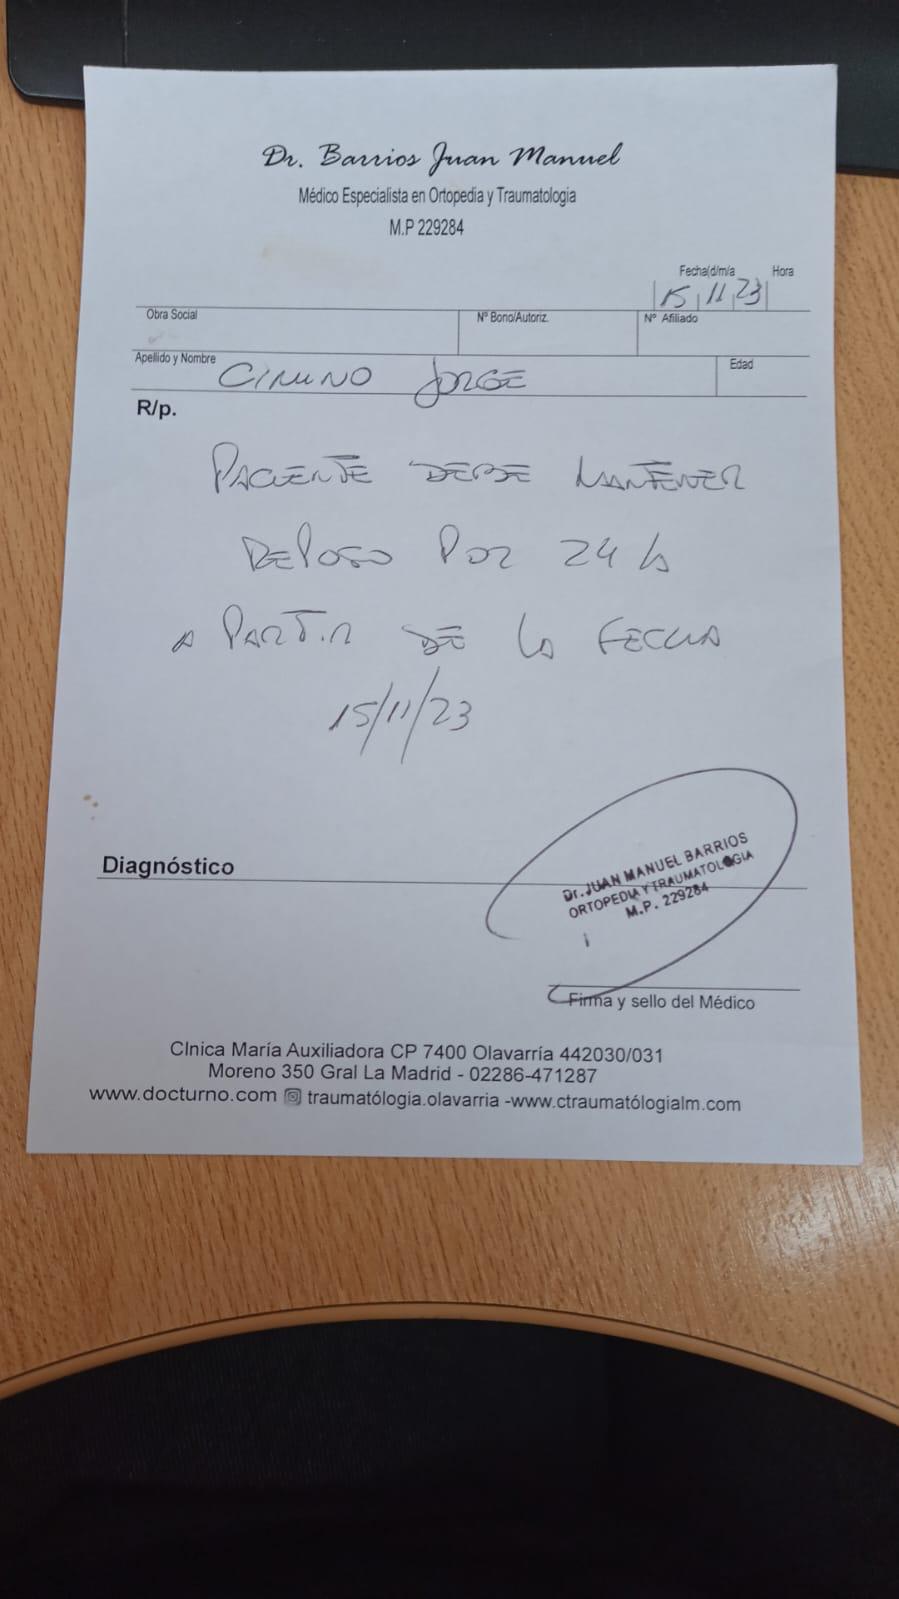 Dr. Barrios Juan Manuel
Médico Especialista en Ortopedia y Traumatologia
M.P 229284
Fecha(d/m/a Hora
15 11 23
Obra Social Nº Bono/Autoriz. Nº Afiliado
Apellido y Nombre CIMINO JORGE Edad
R/p.
PACIENTE DEBE MANTENER
REPOSO POR 24 h
A PARTIR DE LA FECHA
15/11/23
Diagnóstico
Dr. JUAN MANUEL BARRIOS
ORTOPEDIA Y TRAUMATOLOGIA
M.P. 229284
Firma y sello del Médico
Clnica María Auxiliadora CP 7400 Olavarría 442030/031
Moreno 350 Gral La Madrid - 02286-471287
www.docturno.com traumatólogia.olavarria -www.ctraumatólogialm.com